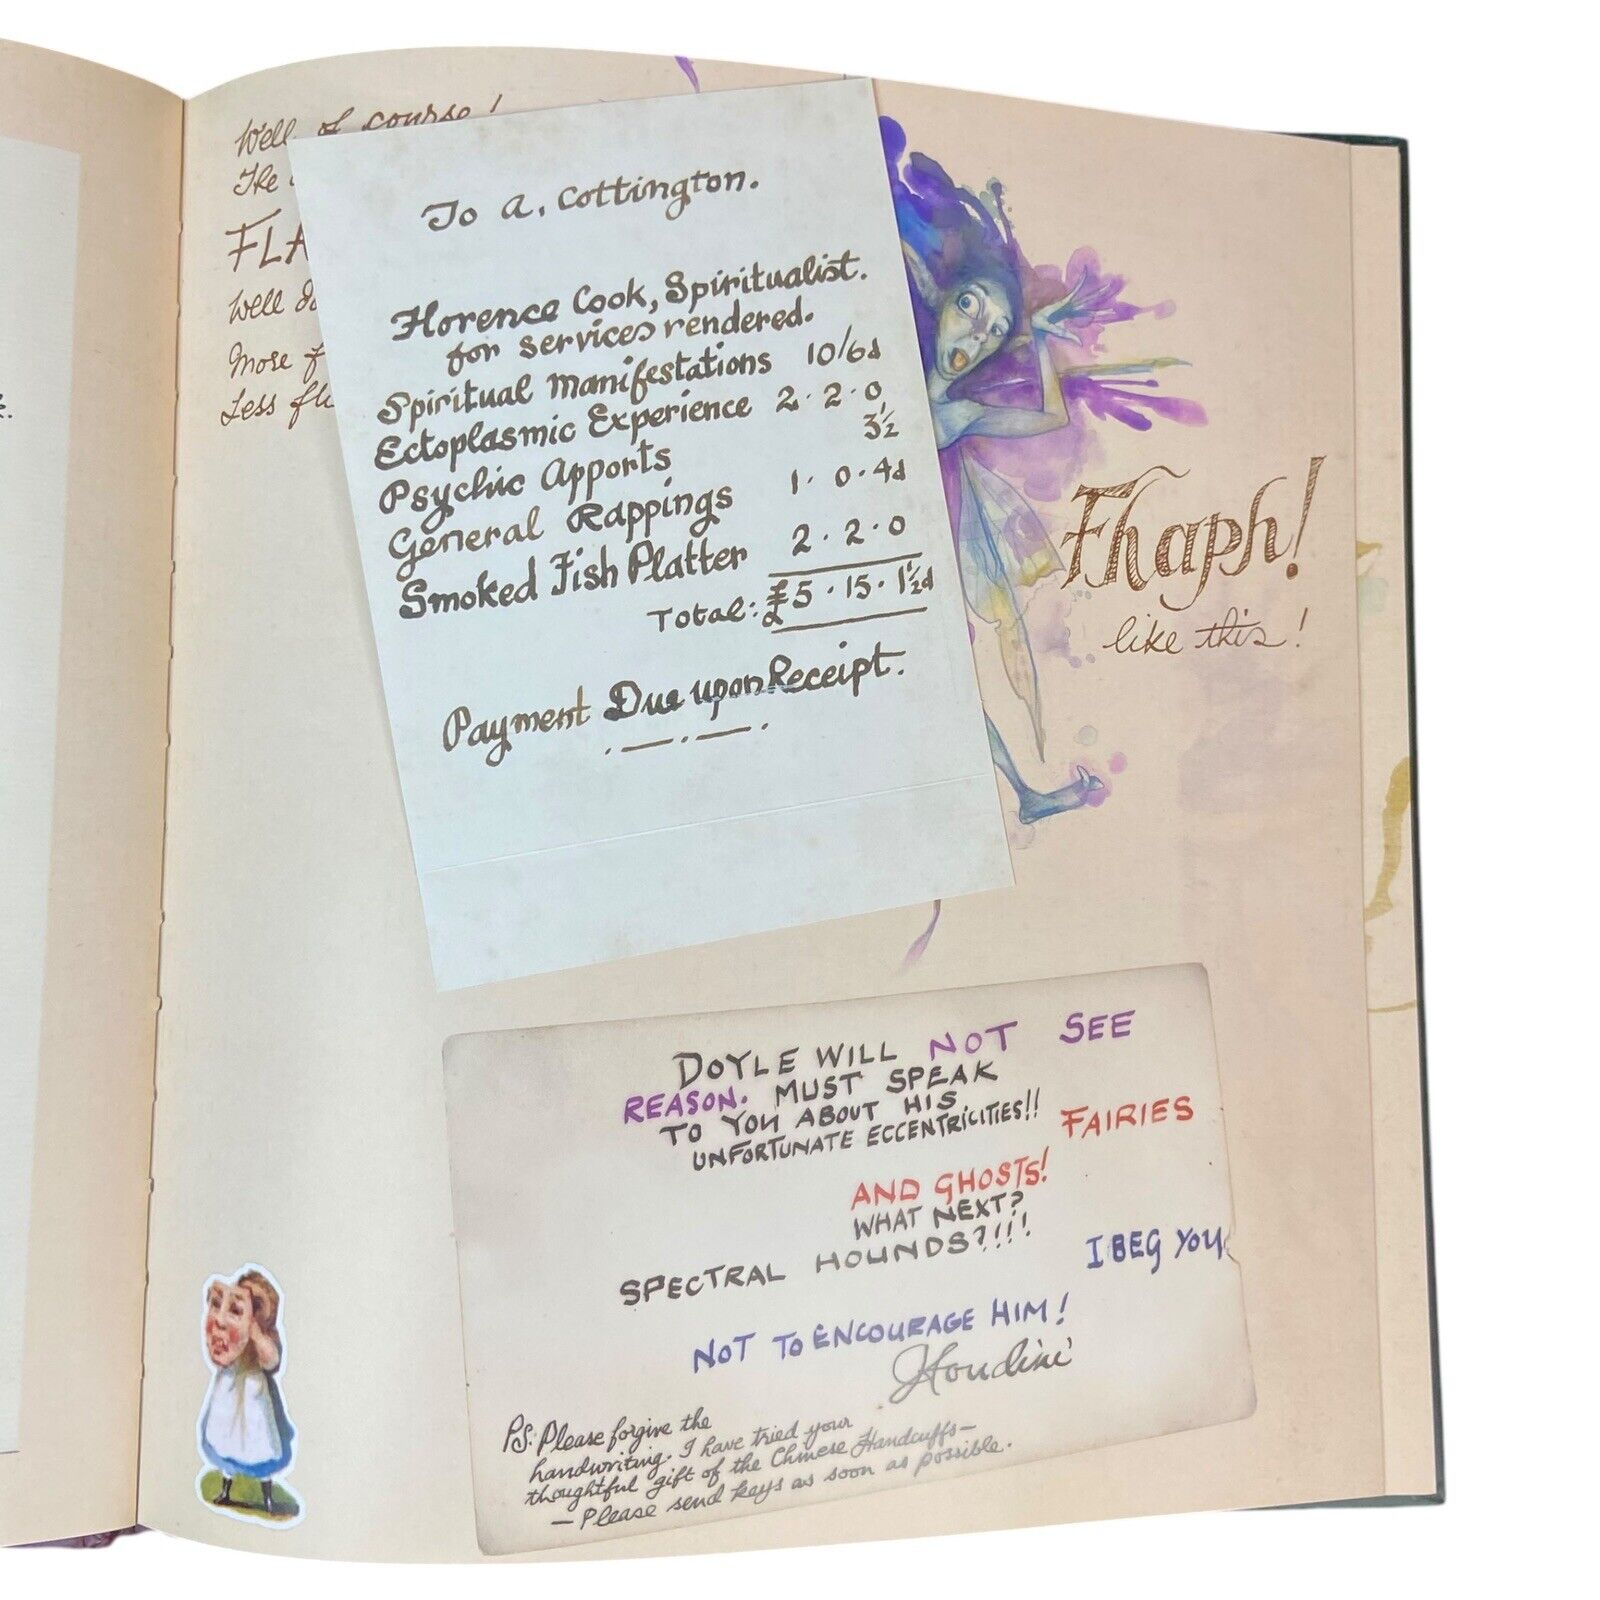 Well of course!
The
FLA
Well
More
Less
To A. Cottington.
Florence Cook, Spiritualist.
for services rendered.
Spiritual Manifestations 10/6d
Ectoplasmic Experience 2.2.0
Psychic Apports 3½
General Rappings 1.0.4d
Smoked Fish Platter 2.2.0
Total: £5.15.1½d
Payment Due upon Receipt.
Fhaph!
like this!
DOYLE WILL NOT SEE
REASON. MUST SPEAK
TO YOU ABOUT HIS
UNFORTUNATE ECCENTRICITIES!! FAIRIES
AND GHOSTS!
WHAT NEXT?
SPECTRAL HOUNDS?!!! I BEG YOU
NOT TO ENCOURAGE HIM!
Houdini
PS: Please forgive the
handwriting. I have tried your
thoughtful gift of the Chinese Handcuffs—
— Please send keys as soon as possible.